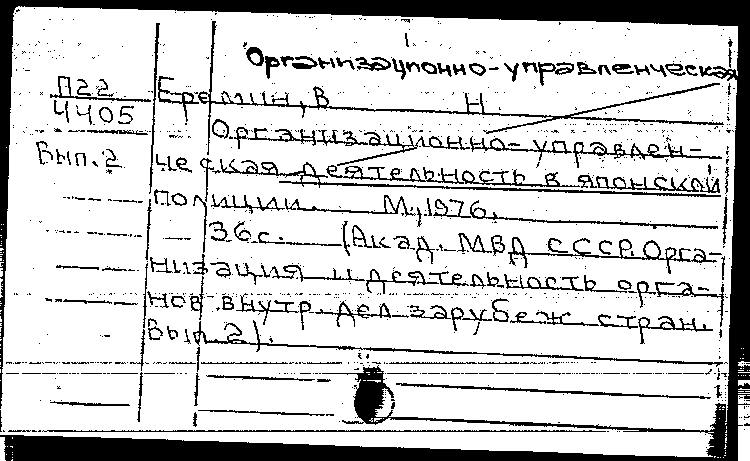 Организационно-управленческая
П22
4405
Вып.2
Еремин, В Н
Организационно-управлен-
ческая деятельность в японской
полиции. М., 1976.
36с. (Акад. МВД СССР. Орга-
низация и деятельность орга-
нов внутр. дел зарубеж стран.
Вып.2).